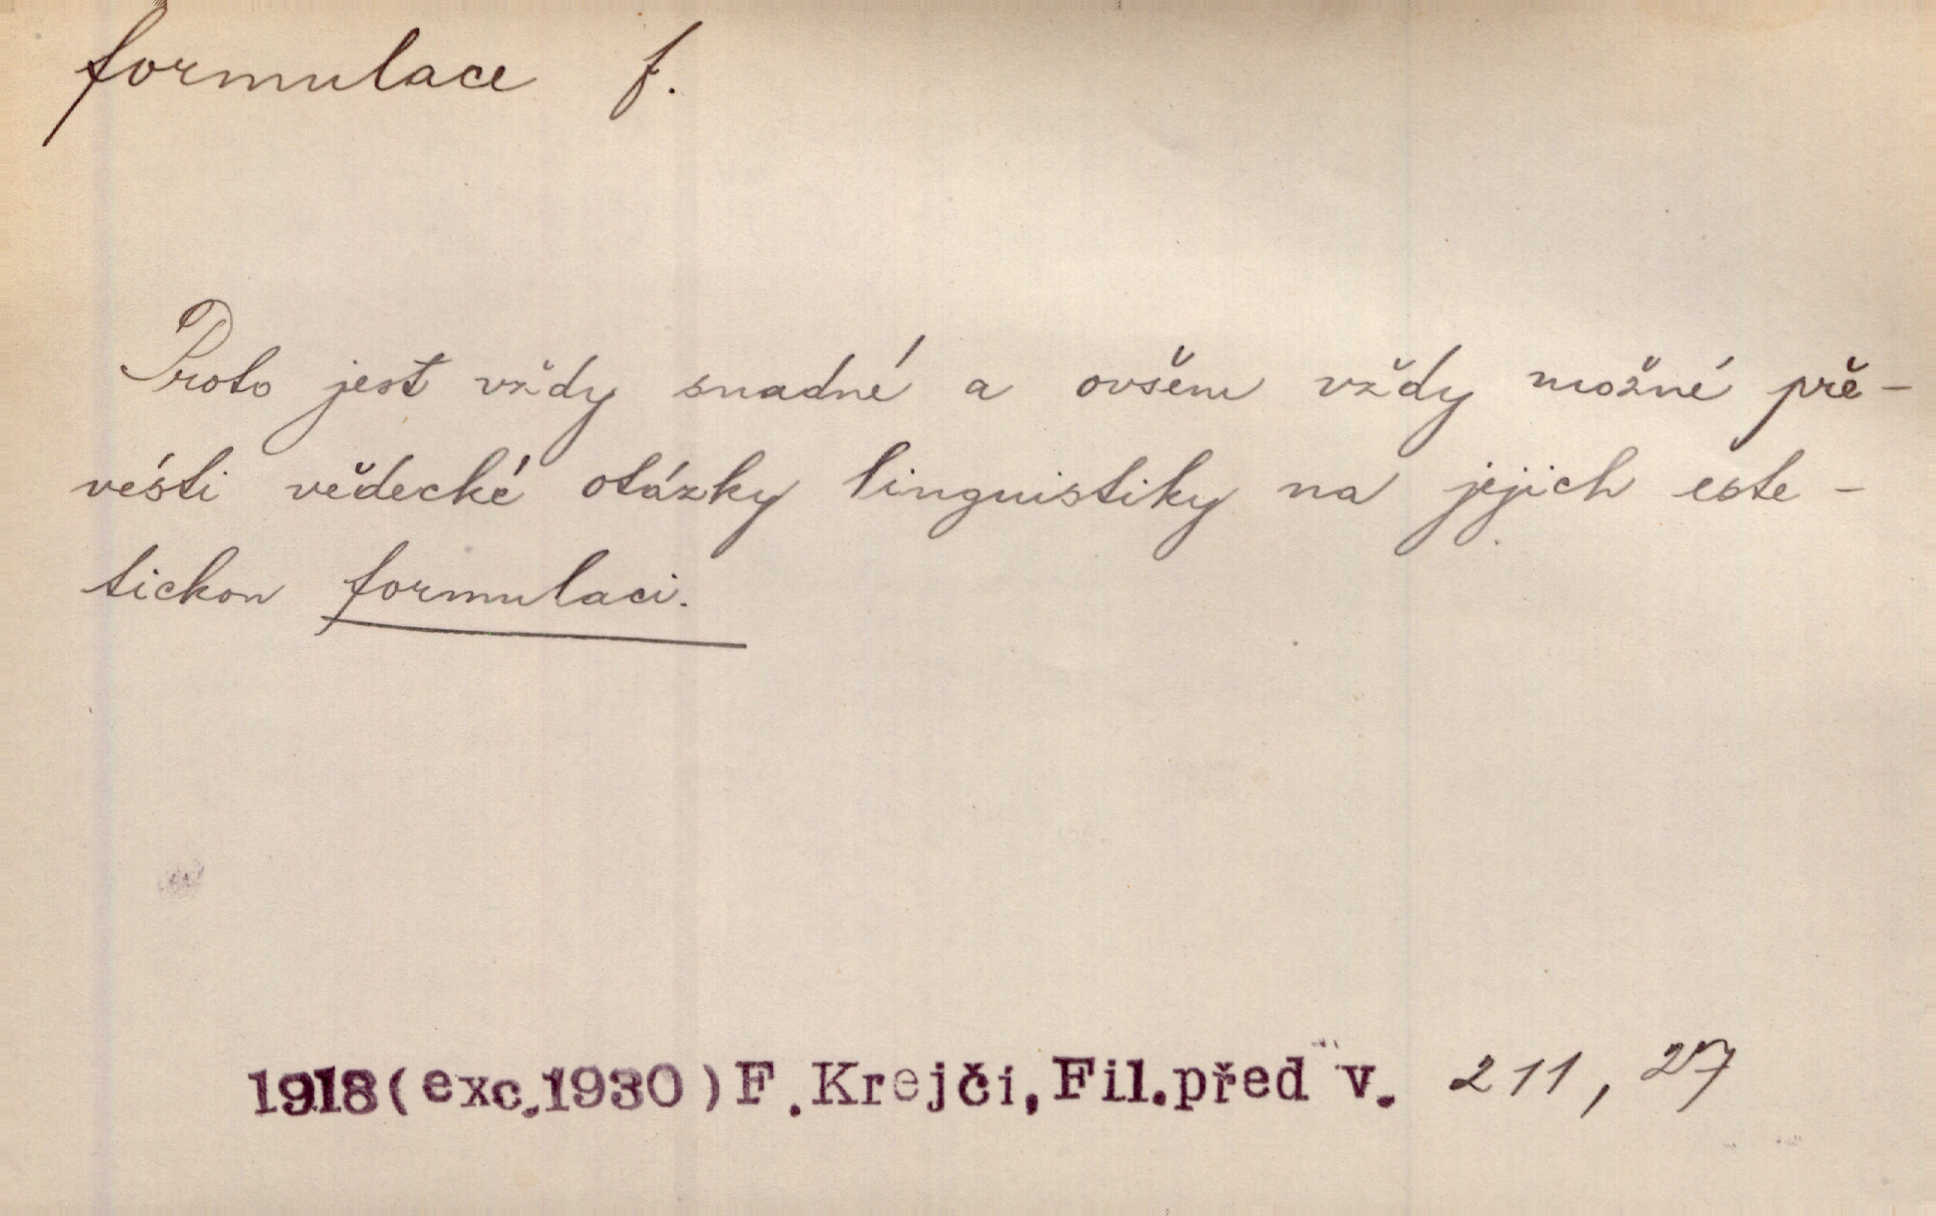 formulace f.
Proto jest vždy snadné a ovšem vždy možné pře-
vésti vědecké otázky linguistiky na jejich este-
tickou formulaci.
1918(exc.1930)F.Krejčí,Fil.před v. 211, 27